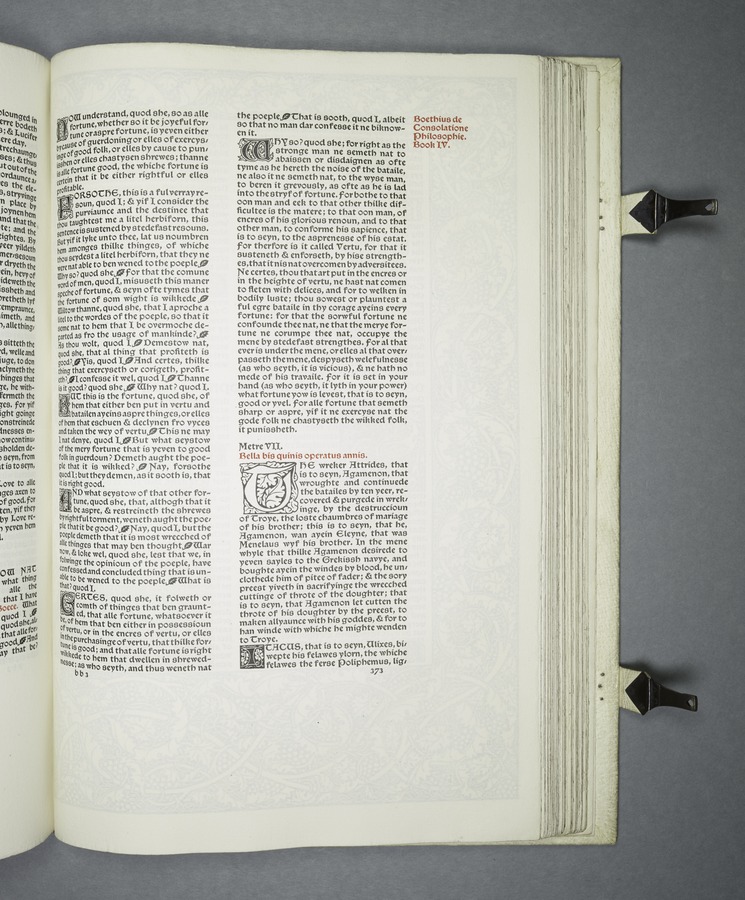 NOW understand, quod she, so as alle
fortune, whether so it be joyeful for/
tune or aspre fortune, is yeven either
by cause of guerdoning or elles of exercys/
inge of good folk, or elles by cause to pun/
isshen or elles chastysen shrewes; thanne
is alle fortune good, the whiche fortune is
certein that it be either rightful or elles
profitable.
FORSOTHE, this is a ful verray re-
soun, quod I; & yif I consider the
purviaunce and the destinee that
thou taughtest me a litel herbiforn, this
sentence is sustened by stedefast resouns.
But yif it lyke unto thee, lat us noumbren
hem amonges thilke thinges, of whiche
thou seydest a litel herbiforn, that they ne
were nat able to ben wened to the poeple.
Why so? quod she. For that the comune
word of men, quod I, misuseth this maner
speche of fortune, & seyn ofte tymes that
the fortune of som wight is wikkede.
Wiltow thanne, quod she, that I aproche a
litel to the wordes of the poeple, so that it
seme nat to hem that I be overmoche de-
parted as fro the usage of mankinde?
As thou wolt, quod I. Demestow nat,
quod she, that al thing that profiteth is
good? Yis, quod I. And certes, thilke
thing that exercyseth or corigeth, profit-
eth? I confesse it wel, quod I. Thanne
is it good? quod she. Why nat? quod I.
BUT this is the fortune, quod she, of
hem that either ben put in vertu and
batailen ayeins aspre thinges, or elles
of hem that eschuen & declynen fro vyces
and taken the wey of vertu. This ne may
I nat denye, quod I. But what seystow
of the mery fortune that is yeven to good
folk in guerdoun? Demeth aught the poe-
ple that it is wikked? Nay, forsothe
quod I; but they demen, as it sooth is, that
it is right good.
AND what seystow of that other for-
tune, quod she, that, althogh that it
be aspre, & restreineth the shrewes
by rightful torment, weneth aught the poe/
ple that it be good? Nay, quod I, but the
poeple demeth that it is most wrecched of
alle thinges that may ben thought. War
now, & loke wel, quod she, lest that we, in
folwinge the opinioun of the poeple, have
confessed and concluded thing that is un-
able to be wened to the poeple. What is
that? quod I.
CERTES, quod she, it folweth or
comth of thinges that ben graunt-
ed, that alle fortune, whatsoever it
be, of hem that ben either in possessioun
of vertu, or in the encres of vertu, or elles
in the purchasinge of vertu, that thilke for/
tune is good; and that alle fortune is right
wikkede to hem that dwellen in shrewed-
nesse; as who seyth, and thus weneth nat
b b 1
the poeple. That is sooth, quod I, albeit
so that no man dar confesse it ne biknow-
en it.
WHY so? quod she; for right as the
stronge man ne semeth nat to
abaissen or disdaignen as ofte
tyme as he hereth the noise of the bataile,
ne also it ne semeth nat, to the wyse man,
to beren it grevously, as ofte as he is lad
into the stryf of fortune. For bothe to that
oon man and eek to that other thilke dif-
ficultee is the matere; to that oon man, of
encres of his glorious renoun, and to that
other man, to conforme his sapience, that
is to seyn, to the asprenesse of his estat.
For therfore is it called Vertu, for that it
susteneth & enforseth, by hise strength-
es, that it nis nat overcomen by adversitees.
Ne certes, thou that art put in the encres or
in the heighte of vertu, ne hast nat comen
to fleten with delices, and for to welken in
bodily luste; thou sowest or plauntest a
ful egre bataile in thy corage ayeins every
fortune: for that the sorwful fortune ne
confounde thee nat, ne that the merye for-
tune ne corumpe thee nat, occupye the
mene by stedefast strengthes. For al that
ever is under the mene, or elles al that over/
passeth the mene, despyseth welefulnesse
(as who seyth, it is vicious), & ne hath no
mede of his travaile. For it is set in your
hand (as who seyth, it lyth in your power)
what fortune yow is levest, that is to seyn,
good or yvel. For alle fortune that semeth
sharp or aspre, yif it ne exercyse nat the
gode folk ne chastyseth the wikked folk,
it punissheth.
Metre VII.
Bella bis quinis operatus annis.
THE wreker Attrides, that
is to seyn, Agamenon, that
wroughte and continuede
the batailes by ten yeer, re-
covered & purgede in wrek/
inge, by the destruccioun
of Troye, the loste chaumbres of mariage
of his brother; this is to seyn, that he,
Agamenon, wan ayein Eleyne, that was
Menelaus wyf his brother. In the mene
whyle that thilke Agamenon desirede to
yeven sayles to the Grekissh navye, and
boughte ayein the windes by blood, he un/
clothede him of pitee of fader; & the sory
preest yiveth in sacrifyinge the wrecched
cuttinge of throte of the doughter; that
is to seyn, that Agamenon let cutten the
throte of his doughter by the preest, to
maken allyaunce with his goddes, & for to
han winde with whiche he mighte wenden
to Troye.
ITACUS, that is to seyn, Ulixes, bi/
wepte his felawes ylorn, the whiche
felawes the ferse Poliphemus, lig/
373
Boethius de
Consolatione
Philosophie.
Book IV.